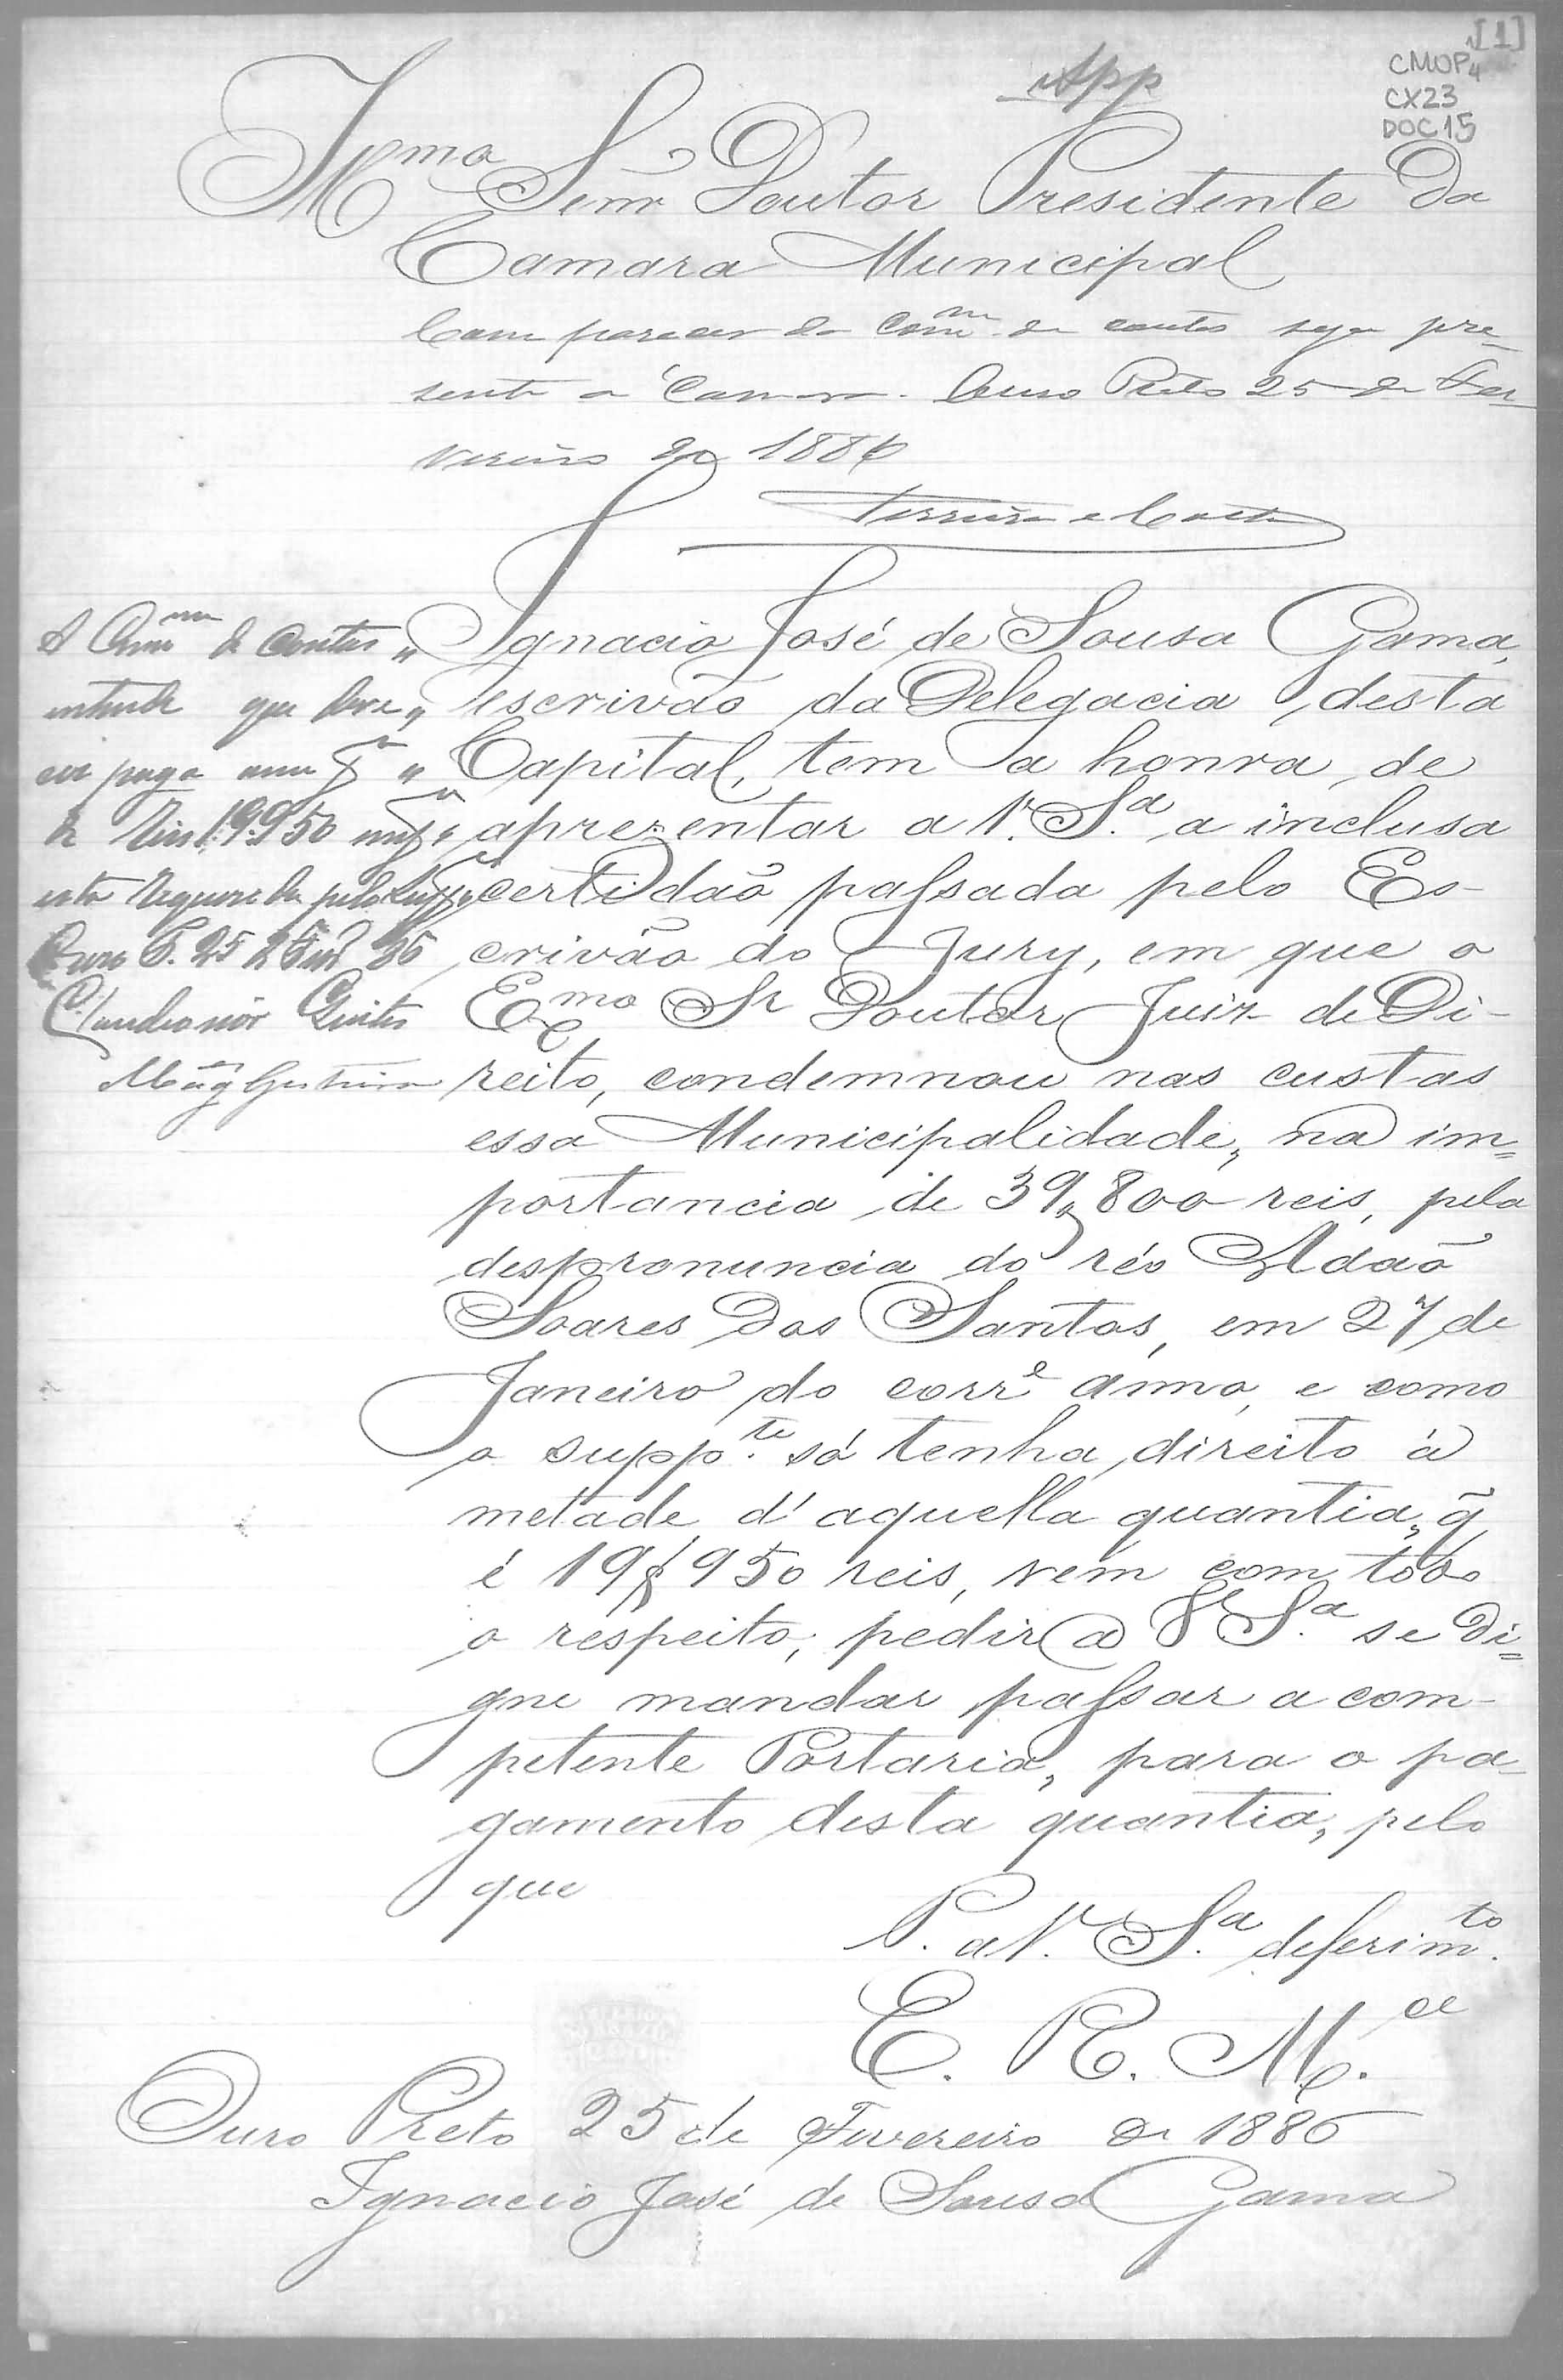 [1]
CMOP
CX23
DOC15
App
Illmo Senr Doutor Presidente da
Camara Municipal
Com parecer da Comm de contas seja pre-
sente a Camara. Ouro Preto 25 de Fe-
vereiro de 1886
Ferreira e Costa
A Comm de Contas
entende que deve
ser paga
de Reis 19$950
esta requerida pelo Supp
Ouro P. 25 2 Fevº 86
Claudionor Quites
Ignacio José de Sousa Gama,
escrivão da Delegacia, desta
Capital, tem a honra, de
aprezentar a V. S.ª a inclusa
certidaõ passada pelo Es-
crivão do Jury, em que o
Exmo Sr Doutor Juiz de Di-
reito, condemnou nas custas
essa Municipalidade, na im=
portancia de 39$800 reis, pela
despronuncia do réo Adaõ
Soares dos Santos, em 27 de
Janeiro do corre anno, e como
o supp.te só tenha direito à
metade d'aquella quantia, q̃
é 19$950 reis, vem com todo
o respeito, pedir a V S.ª se di=
gne mandar passar a com-
petente Portaria, para o pa-
gamento desta quantia, pelo
que
P. a V. S.ª deferim.to
E. R. M.ce
Ouro Preto 25 de Fevereiro de 1886
Ignacio José de Sousa Gama